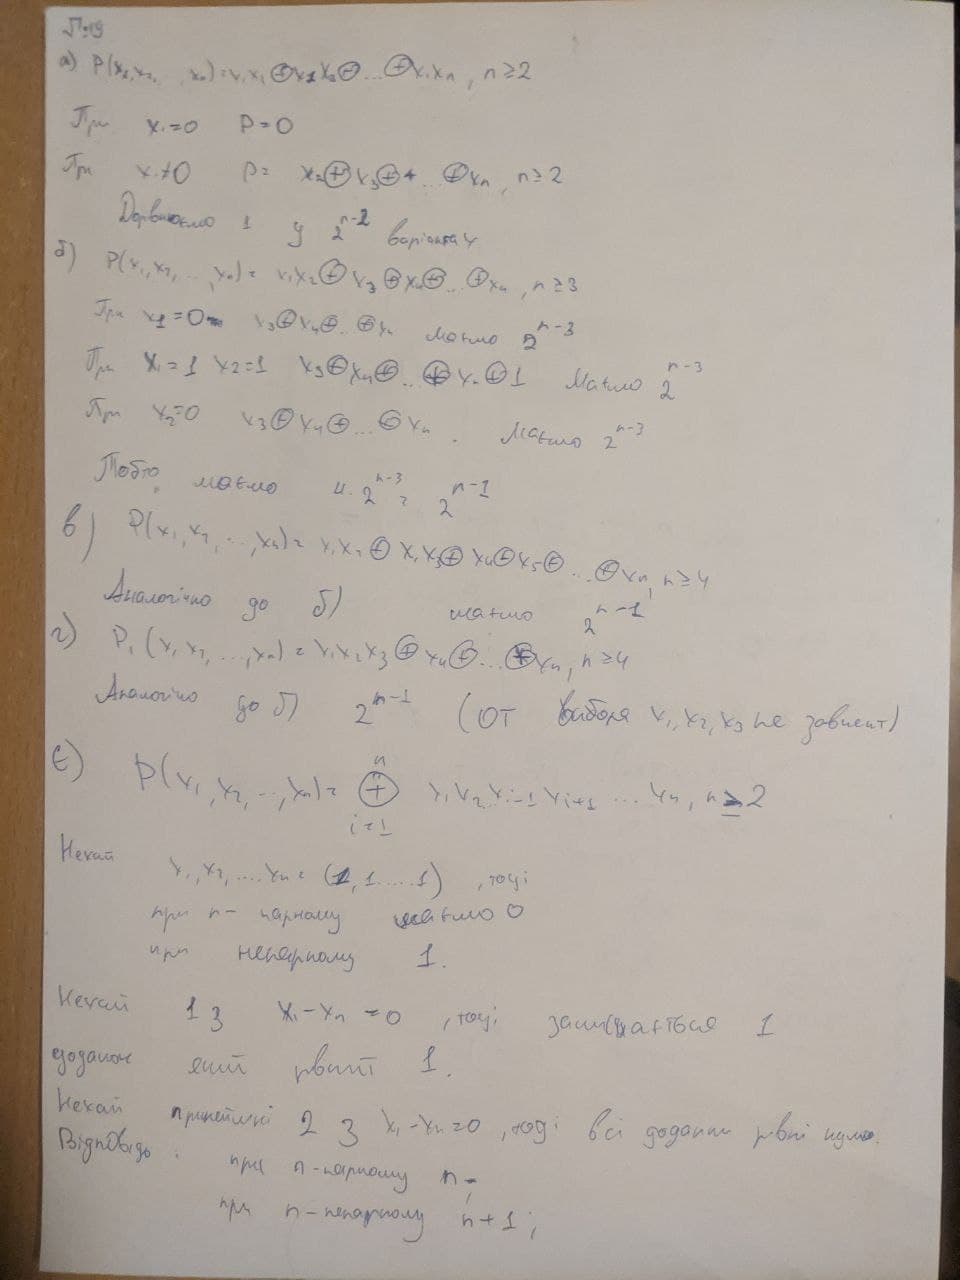 №19
а) P(x₁,x₂, , xₙ) = x₁x₂ ⊕ x₁x₃ ⊕ ... ⊕ x₁xₙ, n ≥ 2
При x₁=0 P=0
При x₁≠0 P= x₂ ⊕ x₃ ⊕ ... ⊕ xₙ, n ≥ 2
Дорвнюємо 1 у 2ⁿ⁻² варіантах
б) P(x₁,x₂,...,xₙ) = x₁x₂ ⊕ x₃ ⊕ x₄ ⊕ ... ⊕ xₙ, n ≥ 3
При x₁=0 x₃ ⊕ x₄ ⊕ ... ⊕ xₙ маємо 2ⁿ⁻³
При x₁=1 x₂=1 x₃ ⊕ x₄ ⊕ ... ⊕ xₙ ⊕ 1 Маємо 2ⁿ⁻³
При x₂=0 x₃ ⊕ x₄ ⊕ ... ⊕ xₙ. Маємо 2ⁿ⁻³
Тобто маємо 4·2ⁿ⁻³ = 2ⁿ⁻¹
в) P(x₁,x₂,...,xₙ) = x₁x₂ ⊕ x₁x₃ ⊕ x₄ ⊕ x₅ ⊕ ... ⊕ xₙ, n ≥ 4
Аналогічно до б) маємо 2ⁿ⁻¹
г) P₁(x₁,x₂,...,xₙ) = x₁x₂x₃ ⊕ x₄ ⊕ ... ⊕ xₙ, n ≥ 4
Аналогічно до б) 2ⁿ⁻¹ (от выбора x₁,x₂,x₃ не зависит)
є) P(x₁,x₂,...,xₙ) = ⊕ⁿᵢ₌₁ x₁x₂xᵢ₋₁xᵢ₊₁ ... xₙ, n ≥ 2
Нехай x₁,x₂,....xₙ = (1,1....1), тоді
при n - парному маємо 0
при непарному 1.
Нехай 1 з x₁-xₙ =0, тоді залишається 1
доданок який рвний 1.
Нехай принаймні 2 з x₁-xₙ=0, тоді всі доданки рвні нулю.
Відповідь: при n-парному n;
при n-непарному n+1;